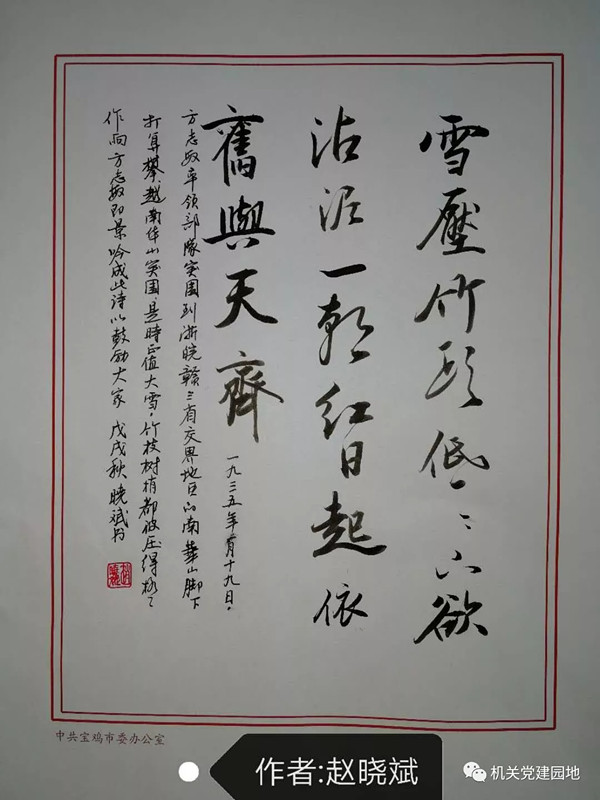 雪壓竹頭低〻下欲
沾泥一朝红日起依
舊與天齊
一九三五年月十九日，
方志敏率领部隊突围到浙皖赣三省交界地区的南華山脚下
打算攀越南华山突围，是時正值大雪，竹枝树梢都被压得
作响方志敏即景吟成此诗以鼓励大家 戊戌秋 晓斌书
中共宝鸡市委办公室
作者:赵晓斌
机关党建园地